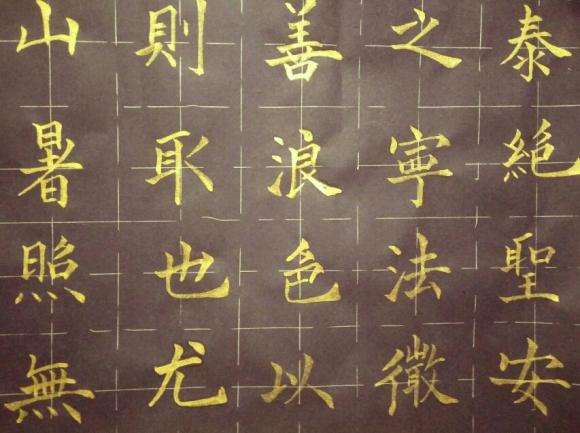 泰絕聖安
之寧法徵
善浪色以
則取也尤
山暑照無